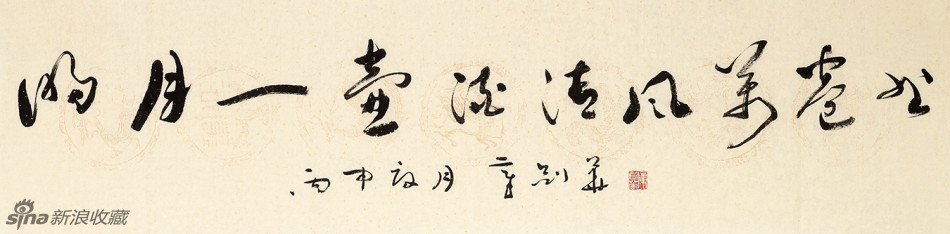 明月一壶酒清风萬卷书
丙申夏月 章剑华
sina新浪收藏